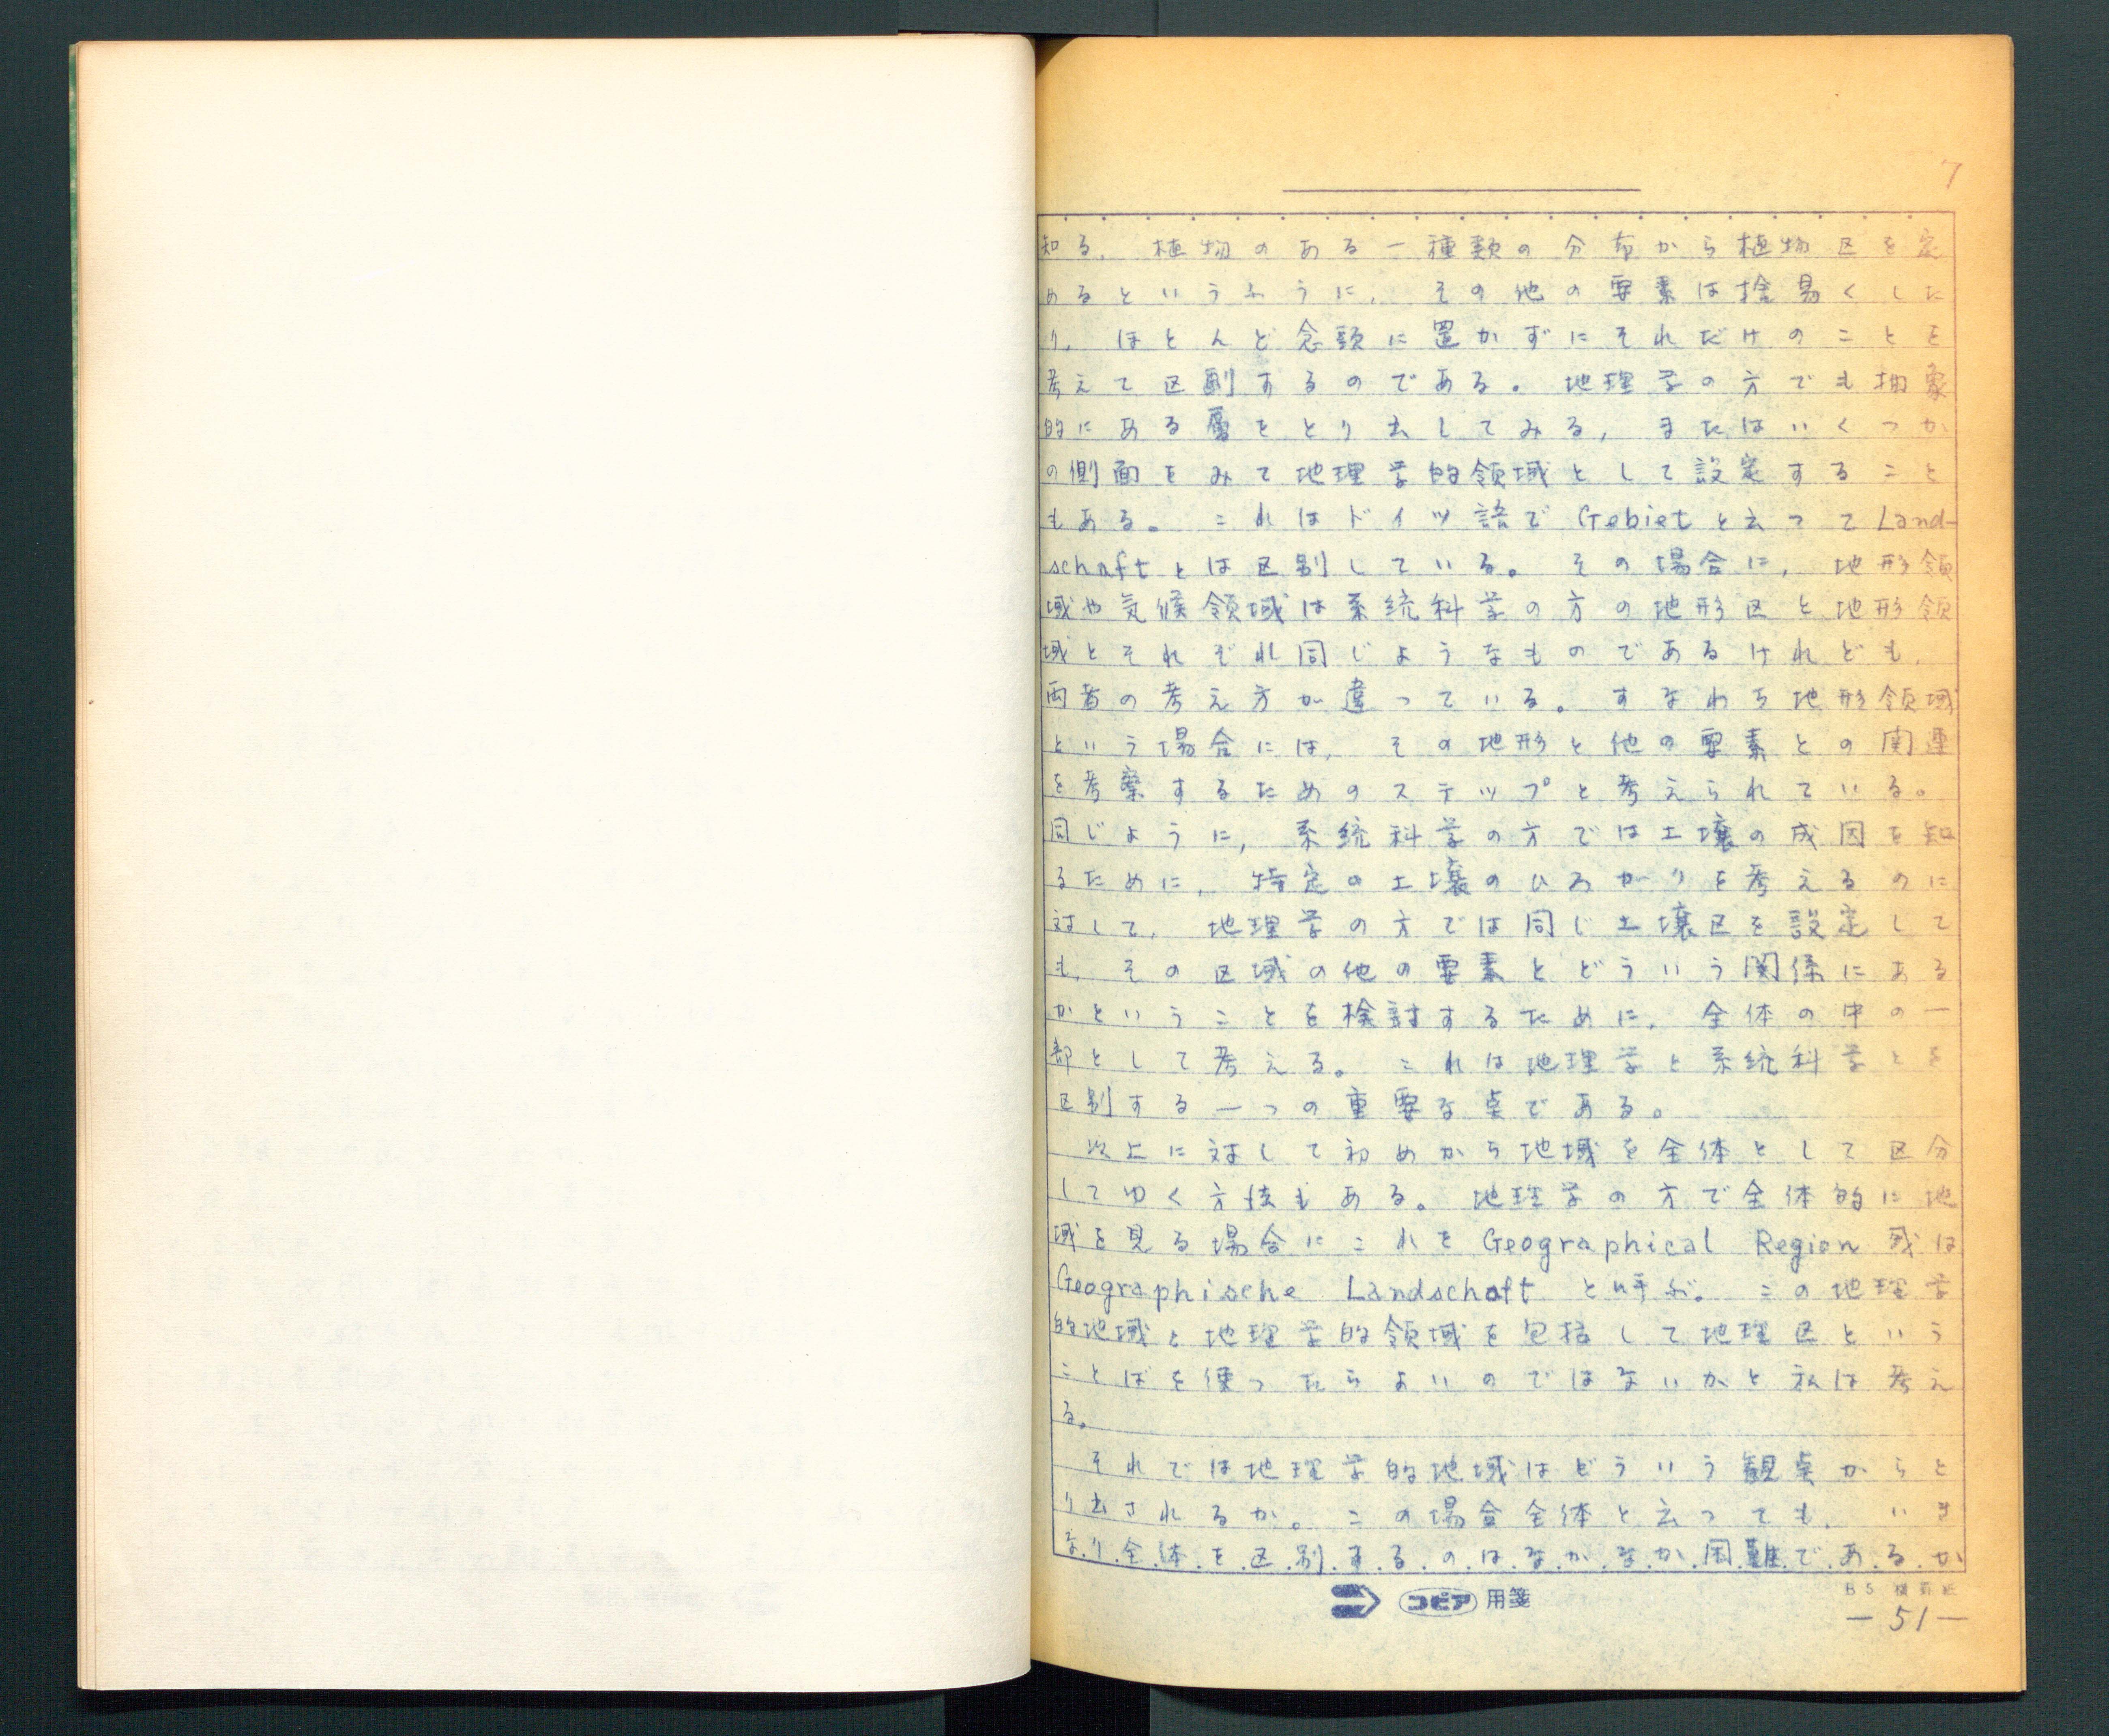 7
知る。植物のある一種類の分布から植物区を定
めるというふうに、その他の要素は捨易くした
り、ほとんど念頭に置かずにそれだけのことを
考えて区劃するのである。地理学の方でも抽象
的にある層をとり出してみる、またはいくつか
の側面をみて地理学的領域として設定すること
もある。これはドイツ語でGebietと云ってLand-
schaftとは区別している。その場合に、地形領
域や気候領域は系統科学の方の地形区と地形領
域とそれぞれ同じようなものであるけれども、
両者の考え方が違っている。すなわち地形領域
という場合には、その地形と他の要素との関連
を考察するためのステップと考えられている。
同じように、系統科学の方では土壌の成因を知
るために、特定の土壌のひろがりを考えるのに
対して、地理学の方では同じ土壌区を設定して
も、その区域の他の要素とどういう関係にある
かということを検討するために、全体の中の一
部として考える。これは地理学と系統科学とを
区別する一つの重要な点である。
以上に対して初めから地域を全体として区分
してゆく方法もある。地理学の方で全体的に地
域を見る場合にこれをGeographical Region或は
Geographische Landschaftと呼ぶ。この地理学
的地域と地理学的領域を包括して地理区という
ことばを使ったらよいのではないかと私は考え
る。
それでは地理学的地域はどういう観点からと
り出されるか。この場合全体と云っても、いき
なり全体を区別するのはなかなか困難であるか
コピア 用箋
B5 横罫紙
—51—